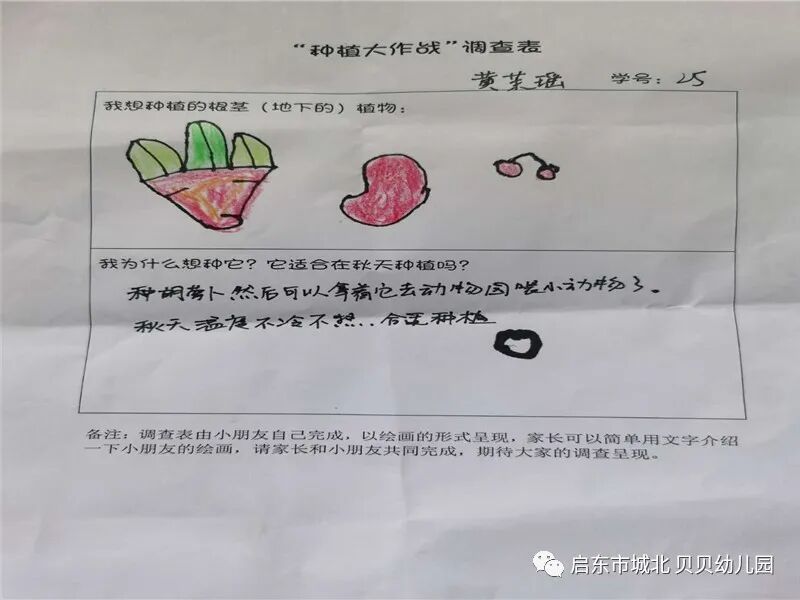 “种植大作战”调查表
黄茉瑶 学号：25
我想种植的根茎（地下的）植物：
我为什么想种它？它适合在秋天种植吗？
种胡萝卜然后可以拿着它去动物园喂小动物了。
秋天温度不冷不热..合适种植
备注：调查表由小朋友自己完成，以绘画的形式呈现，家长可以简单用文字介绍
一下小朋友的绘画，请家长和小朋友共同完成，期待大家的调查呈现。
启东市城北 贝贝幼儿园